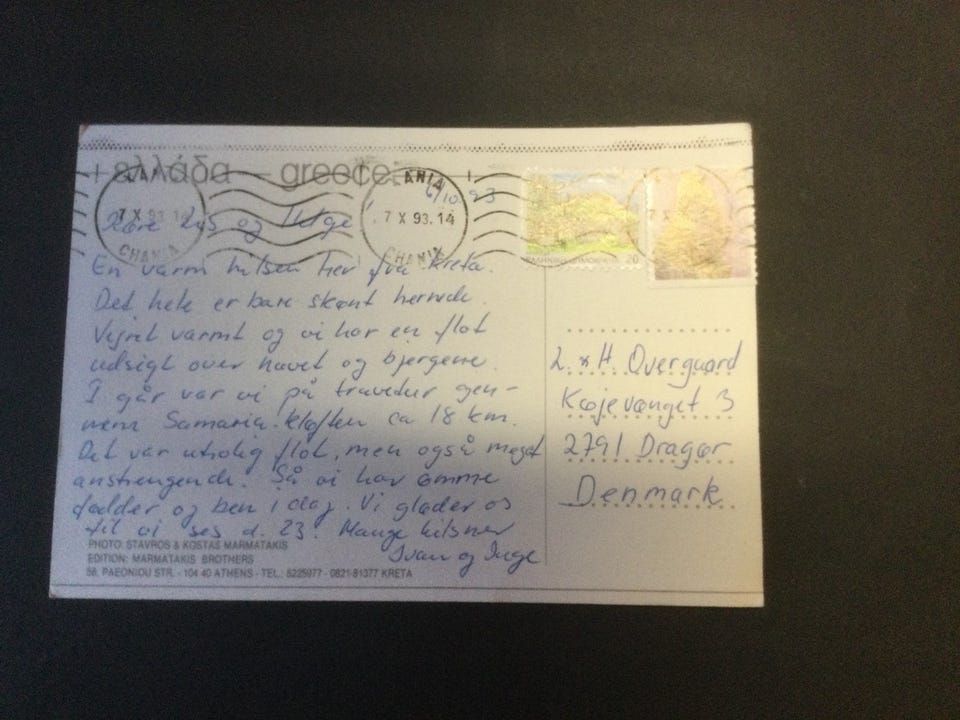 ελλάδα – greece
ΧΑΝΙΑ
7 X 93.14
CHANIA
ΧΑΝΙΑ
7 X 93.14
CHANIA
6/10-93
ΕΛΛΗΝΙΚΗ ΔΗΜΟΚΡΑΤΙΑ 20
7 X
Kære Lis og Helge!
En varm hilsen her fra Kreta.
Det hele er bare skønt hernede.
Vejret varmt og vi har en flot
udsigt over havet og bjergene.
I går var vi på travetur gen-
nem Samaria-kløften ca 18 km.
Det var utrolig flot, men også meget
anstrengende. Så vi har ømme
fødder og ben i dag. Vi glæder os
til vi ses d. 23. Mange hilsner
Svan og Inge
L. & H. Overgaard
Køjevænget 3
2791 Dragør
Denmark
PHOTO: STAVROS & KOSTAS MARMATAKIS
EDITION: MARMATAKIS BROTHERS
58, PAEONIDU STR. - 104 40 ATHENS - TEL.: 5225977 - 0821-81377 KRETA